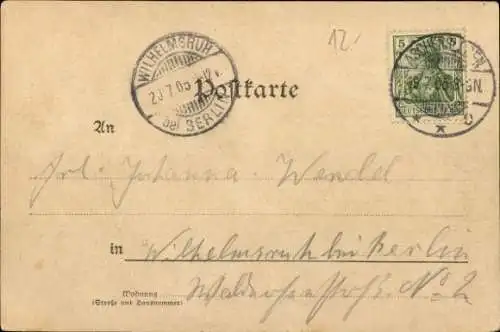 12.
WILHELMSRUH
20.7.05
bei BERLIN
5
Postkarte
An
Frl. Johanna Wendel
in Wilhelmsruh bei Berlin
Wohnung
(Straße und Hausnummer)
No 2